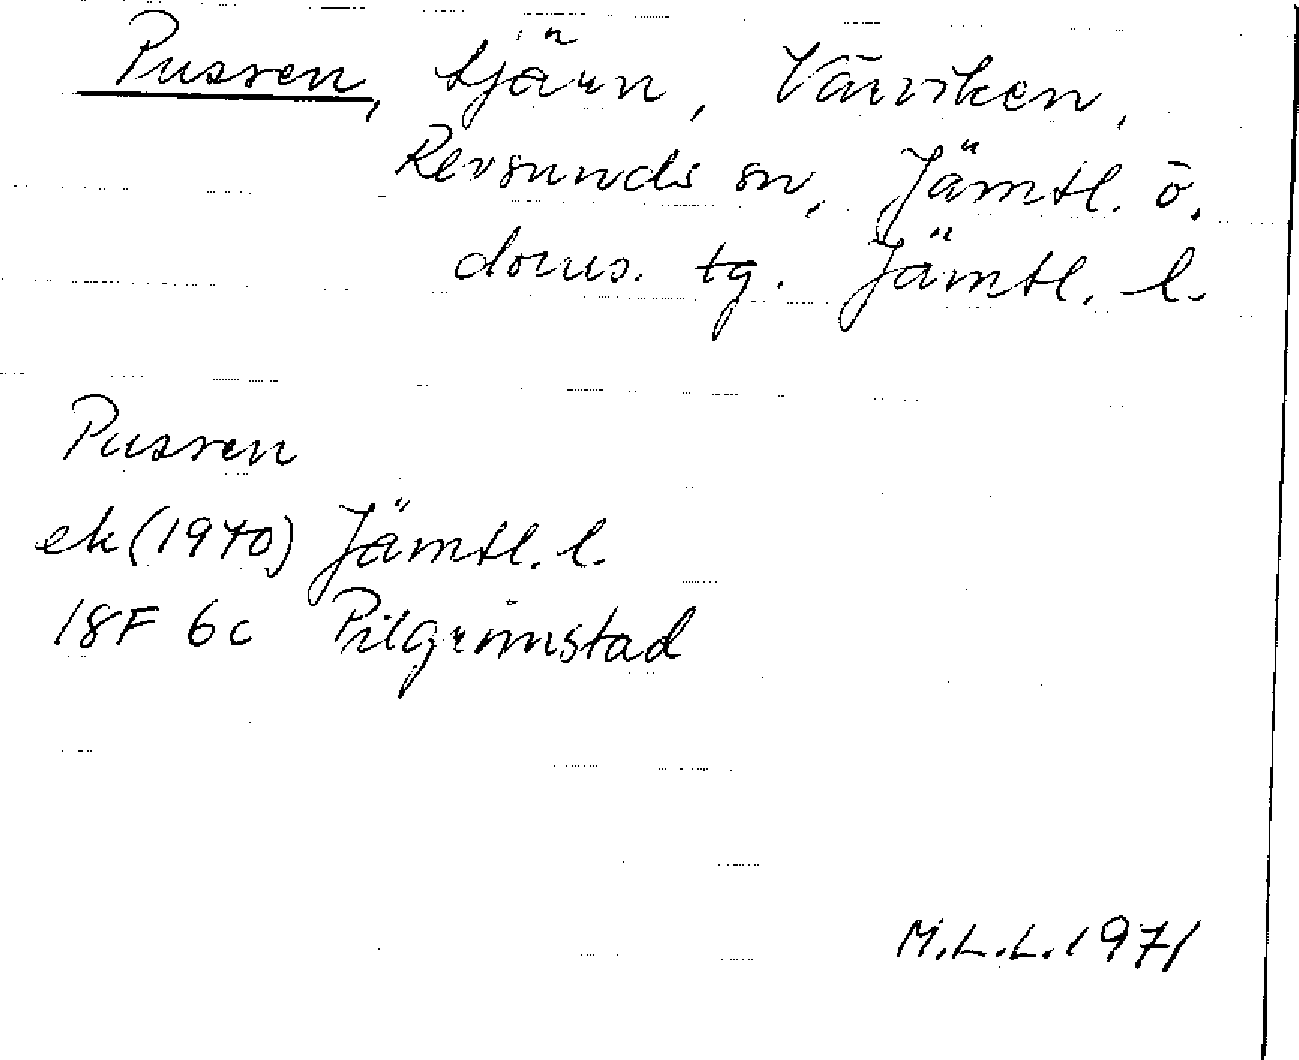 Pussen, tjärn, Värviken,
Revsunds sn, Jämtl. ö.
doms. tg. Jämtl. l.
Pussen
ek (1940) Jämtl. l.
18F 6c Pilgrimstad
M.L.L. 1971